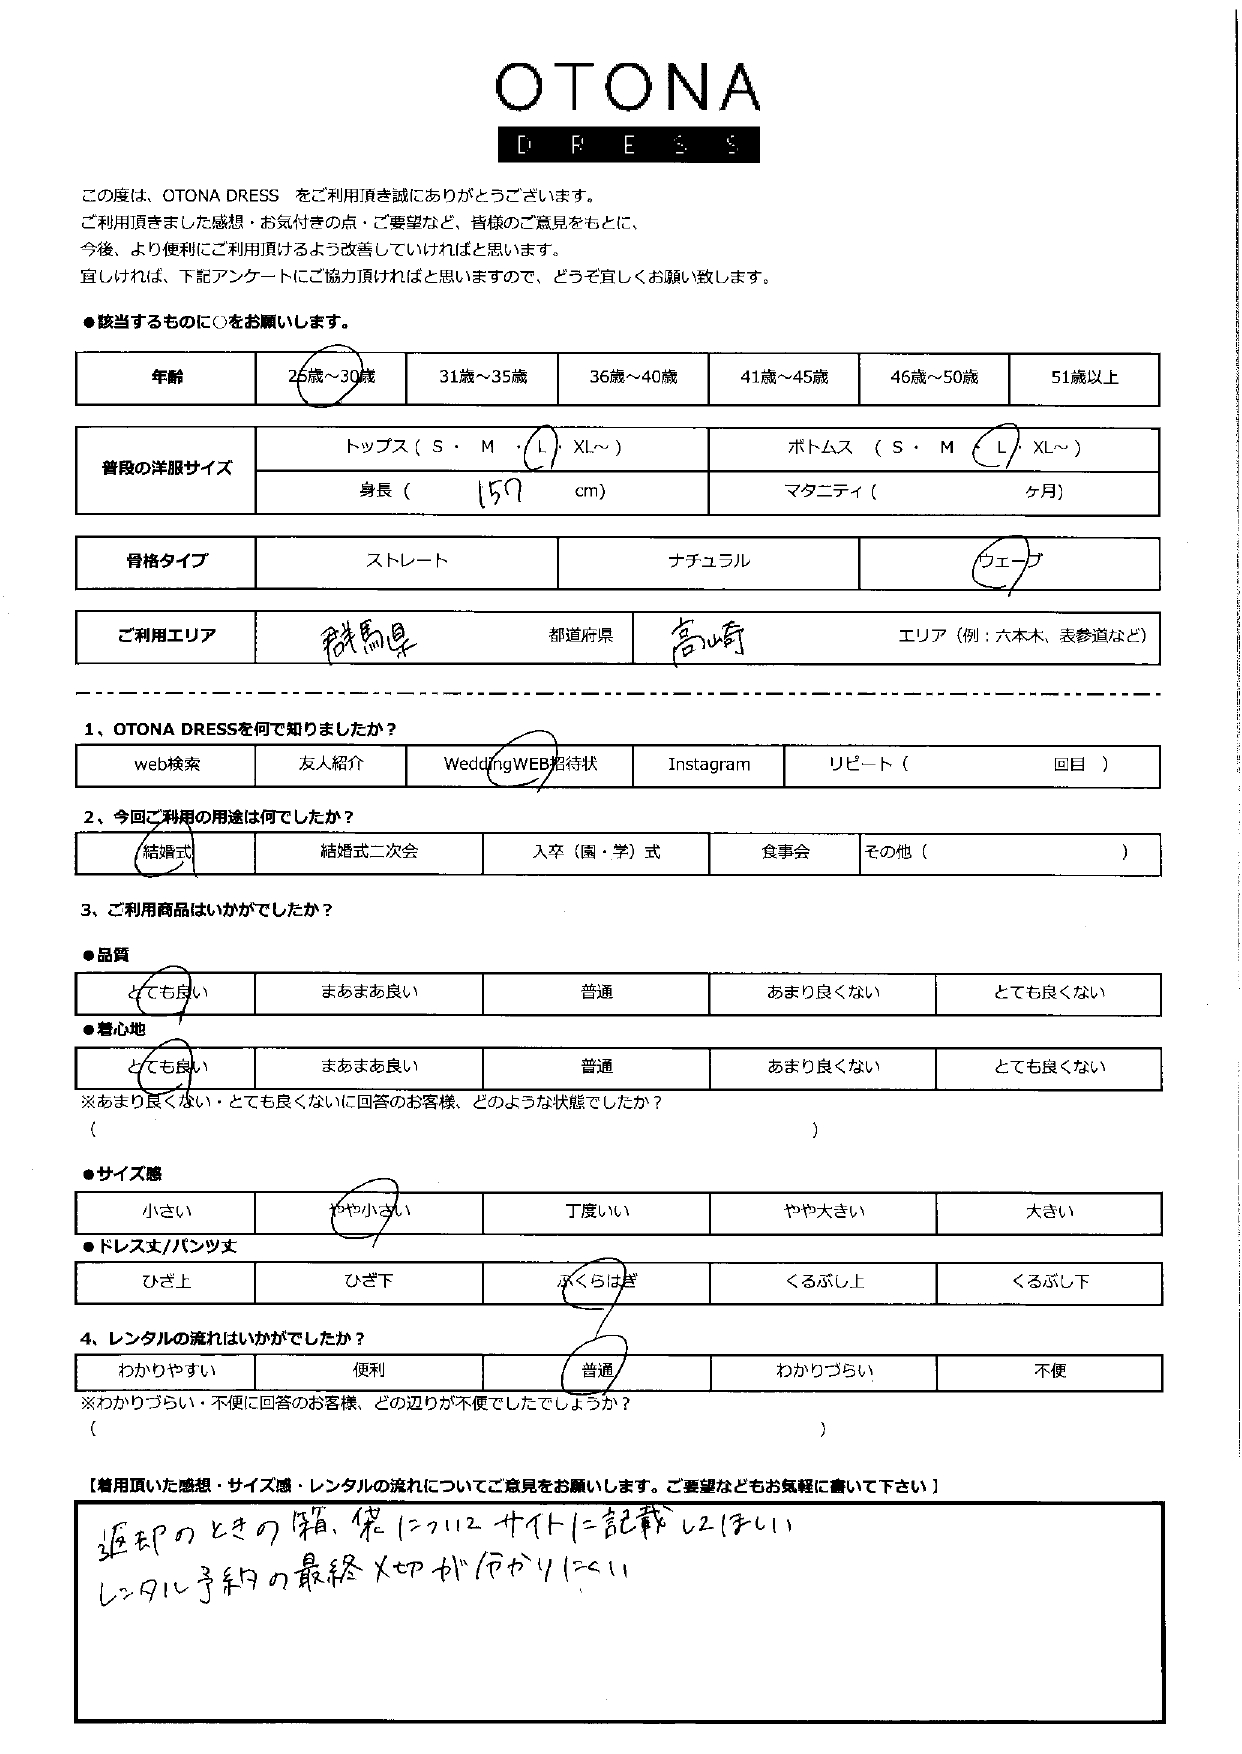 OTONA
DRESS
この度は、OTONA DRESS　をご利用頂き誠にありがとうございます。
ご利用頂きました感想・お気付きの点・ご要望など、皆様のご意見をもとに、
今後、より便利にご利用頂けるよう改善していければと思います。
宜しければ、下記アンケートにご協力頂ければと思いますので、どうぞ宜しくお願い致します。
●該当するものに○をお願いします。
年齢 26歳～30歳 31歳～35歳 36歳～40歳 41歳～45歳 46歳～50歳 51歳以上
普段の洋服サイズ トップス ( S ・ M ・ L ・ XL～ ) ボトムス ( S ・ M ・ L ・ XL～ )
身長 ( 157 cm) マタニティ ( ヶ月)
骨格タイプ ストレート ナチュラル ウェーブ
ご利用エリア 群馬県 都道府県 高崎 エリア（例：六本木、表参道など）
1、OTONA DRESSを何で知りましたか？
web検索 友人紹介 WeddingWEB招待状 Instagram リピート（ 回目 ）
2、今回ご利用の用途は何でしたか？
結婚式 結婚式二次会 入卒（園・学）式 食事会 その他（ ）
3、ご利用商品はいかがでしたか？
●品質
とても良い まあまあ良い 普通 あまり良くない とても良くない
●着心地
とても良い まあまあ良い 普通 あまり良くない とても良くない
※あまり良くない・とても良くないに回答のお客様、どのような状態でしたか？
（ ）
●サイズ感
小さい やや小さい 丁度いい やや大きい 大きい
●ドレス丈/パンツ丈
ひざ上 ひざ下 ふくらはぎ くるぶし上 くるぶし下
4、レンタルの流れはいかがでしたか？
わかりやすい 便利 普通 わかりづらい 不便
※わかりづらい・不便に回答のお客様、どの辺りが不便でしたでしょうか？
（ ）
【着用頂いた感想・サイズ感・レンタルの流れについてご意見をお願いします。ご要望などもお気軽に書いて下さい】
返却のときの箱、袋についてサイトに記載してほしい
レンタル予約の最終〆切が分かりにくい